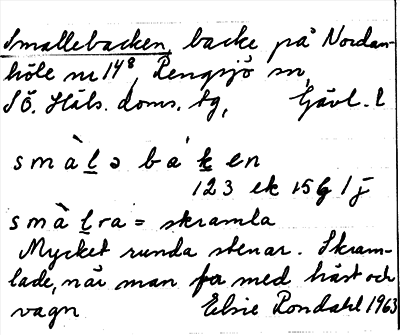 Smallebacken, backe på Nordan-
höle nr 14⁸, Rengsjö sn,
SÖ. Häls. doms. tg, Gävl. l
smàlə bá ken
123 ek 15G 1j
smàlra = skramla
Mycket runda stenar. Skram-
lade, när man for med häst och
vagn Elsie Rondahl 1963